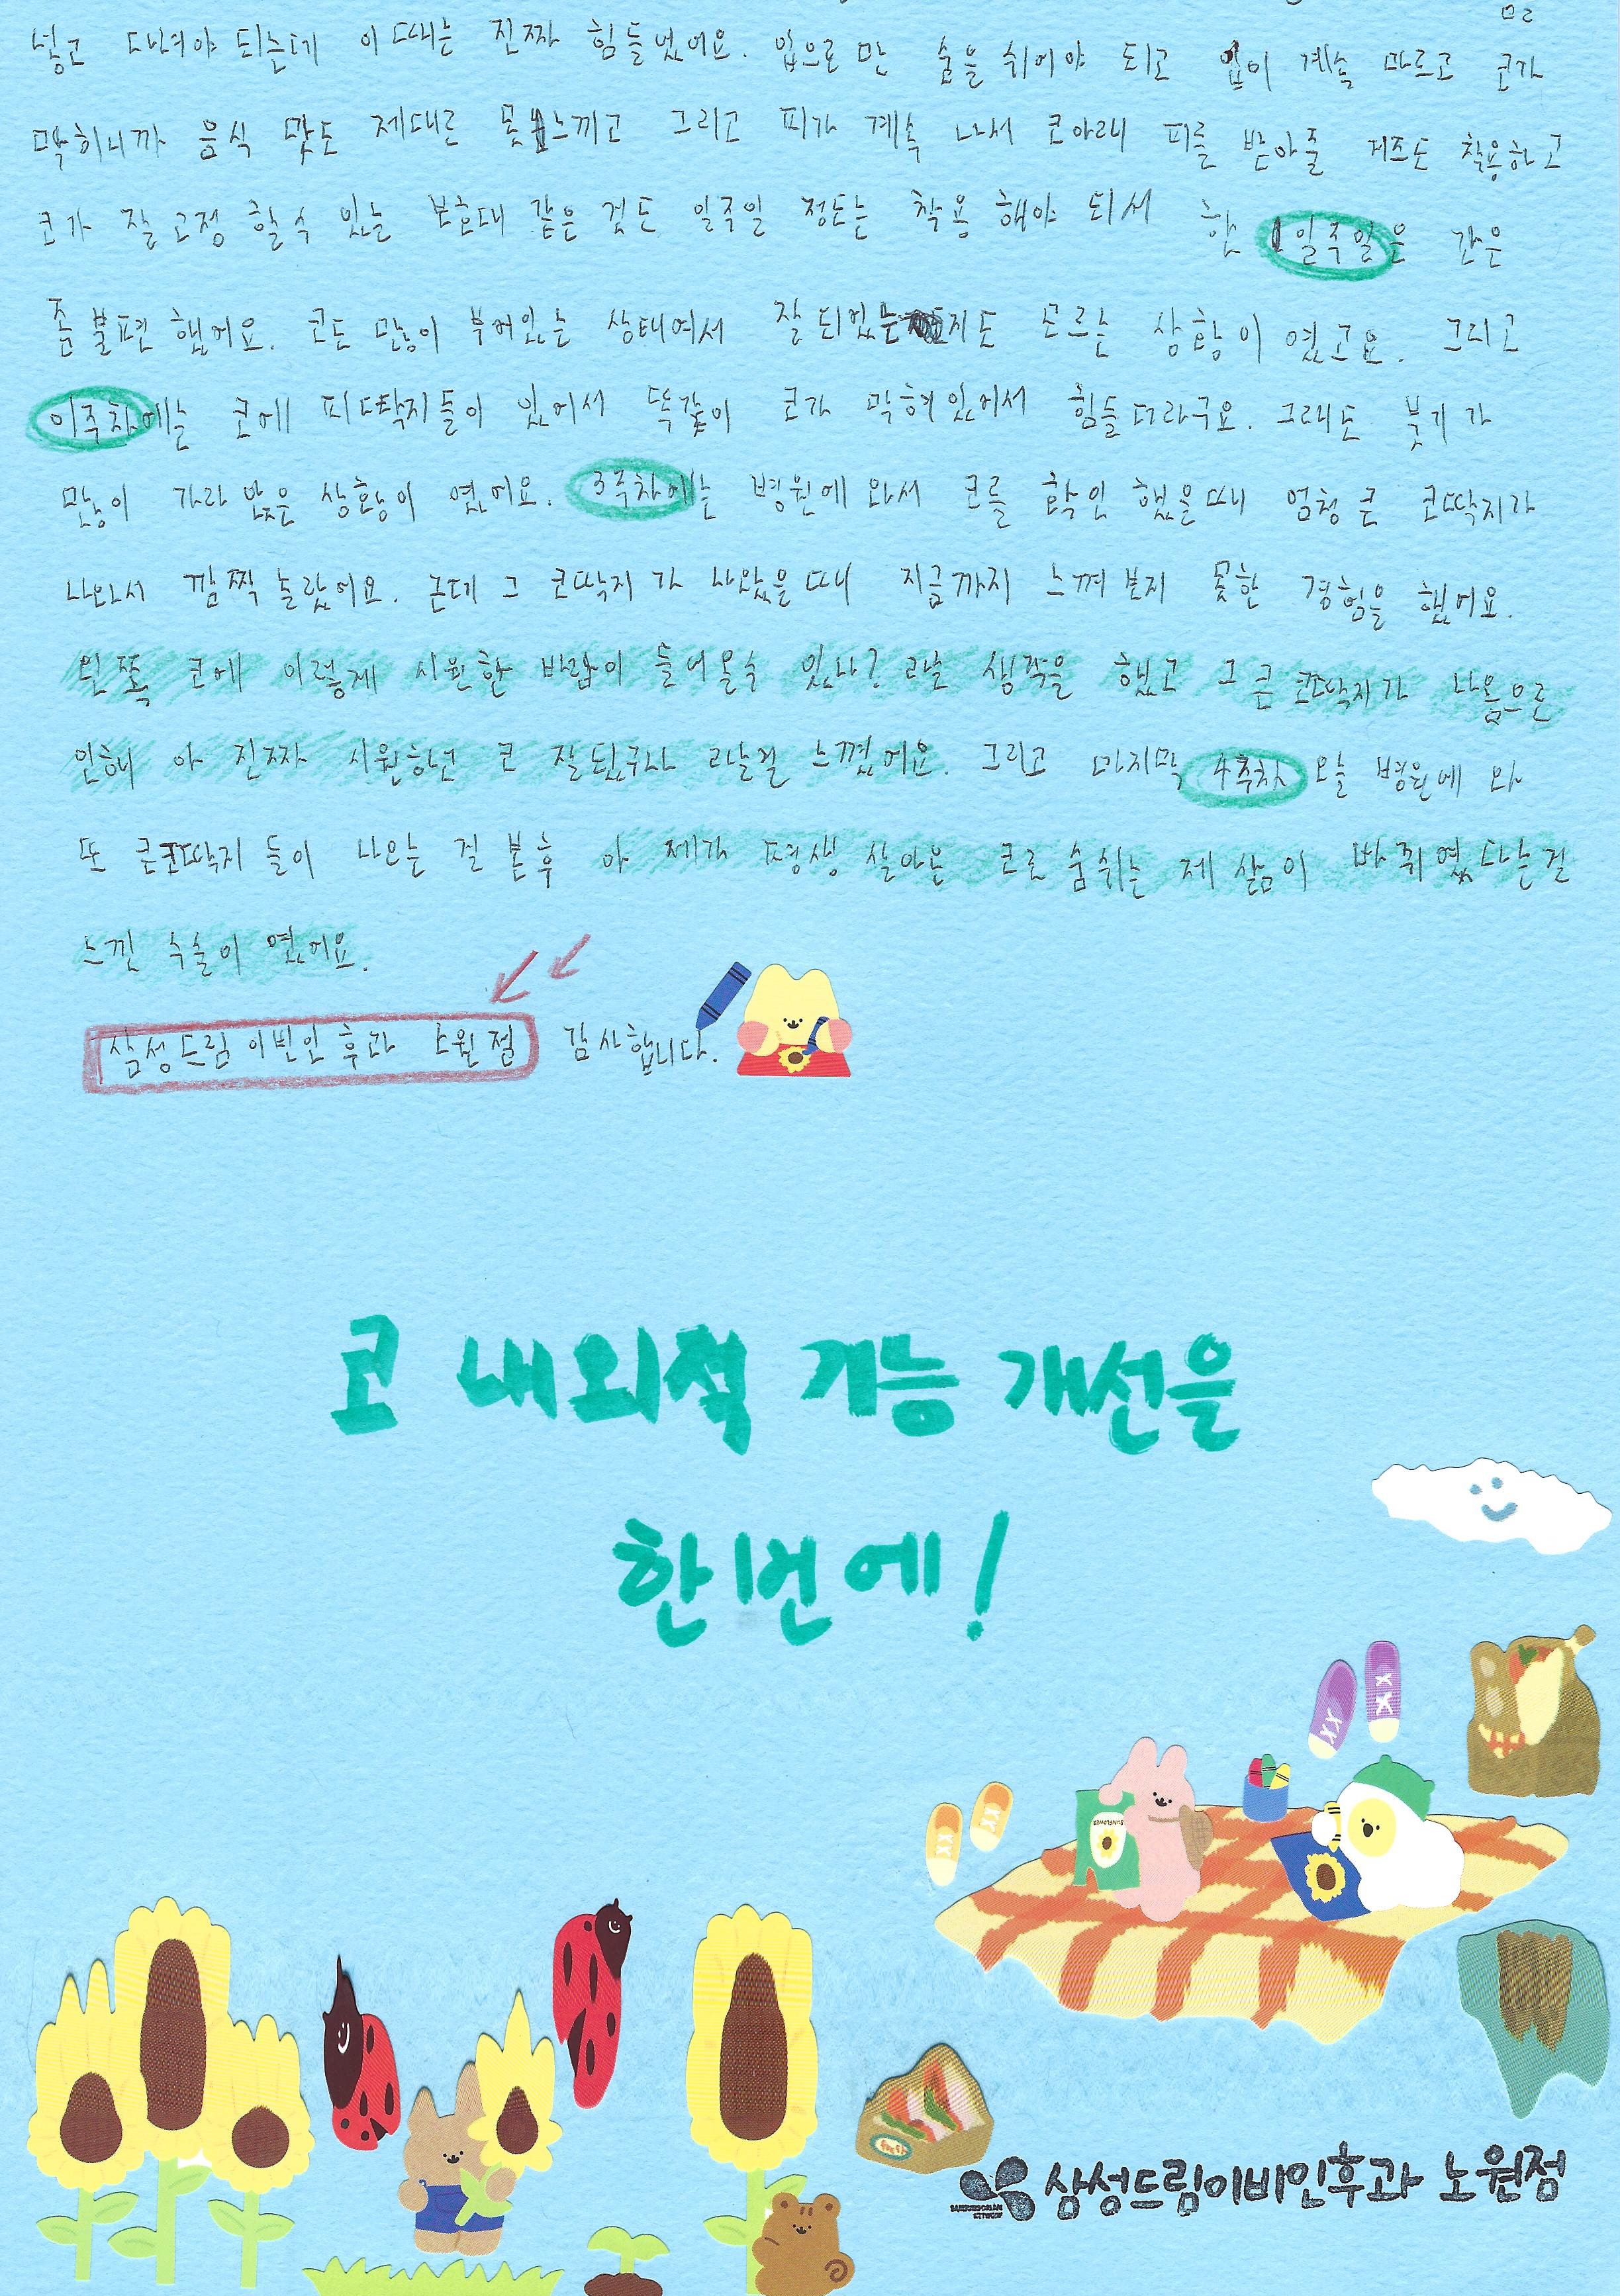 넣고 다녀야 되는데 이때는 진짜 힘들었어요. 입으로만 숨을 쉬어야 되고 입이 계속 마르고 코가
막히니까 음식 맛도 제대로 못느끼고 그리고 피가 계속 나서 코아래 피를 받아줄 거즈도 착용하고
코가 잘 고정 할수 있는 보호대 같은 것도 일주일 정도는 착용 해야 되서 한 1일주일은 간은
좀 불편 했어요. 코도 많이 부어있는 상태여서 잘 되었는지도 모르는 상황이 였고요. 그리고
이주차에는 코에 피딱지들이 있어서 똑같이 코가 막혀있어서 힘들더라구요. 그래도 붓기가
많이 가라 앉은 상황이 였어요. 3주차에는 병원에 와서 코를 확인 했을때 엄청 큰 코딱지가
나와서 깜짝 놀랐어요. 근데 그 코딱지가 나왔을때 지금까지 느껴보지 못한 경험을 했어요.
왼쪽 코에 이렇게 시원한 바람이 들어올수 있나? 라날 생각을 했고 그 큰 코딱지가 나옴으로
인해 아 진짜 시원하고 코 잘됬구나 라날걸 느꼈어요. 그리고 마지막 4주차 오늘 병원에 와
또 큰코딱지 들이 나오는 걸 본후 아 제가 평생 살아온 코로 숨쉬는 제 삶이 바뀌였다는걸
느낀 수술이 였어요.
삼성드림이빈인후과 노원점 감사합니다.
코 내외적 기능 개선을
한1번에!
SUNFLOWER
Fresh
삼성드림이비인후과 노원점
SAMSUNGDREAM
NETWORK